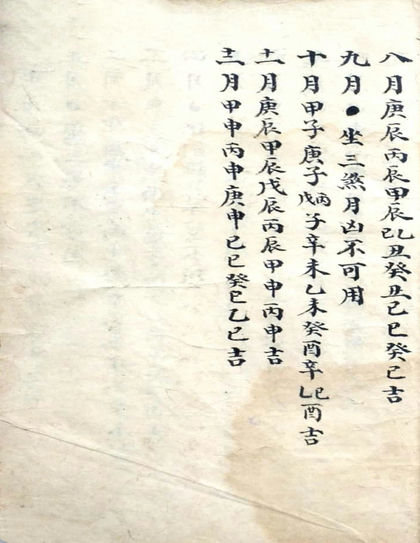 八月庚辰丙辰甲辰乙己丑癸丑己巳癸巳吉
九月●坐三煞月凶不可用
十月甲子庚子丙戊子辛未乙未癸酉辛己乙酉吉
十一月庚辰甲辰戊辰丙辰甲申丙申吉
十二月甲申丙申庚申己巳癸巳乙巳吉